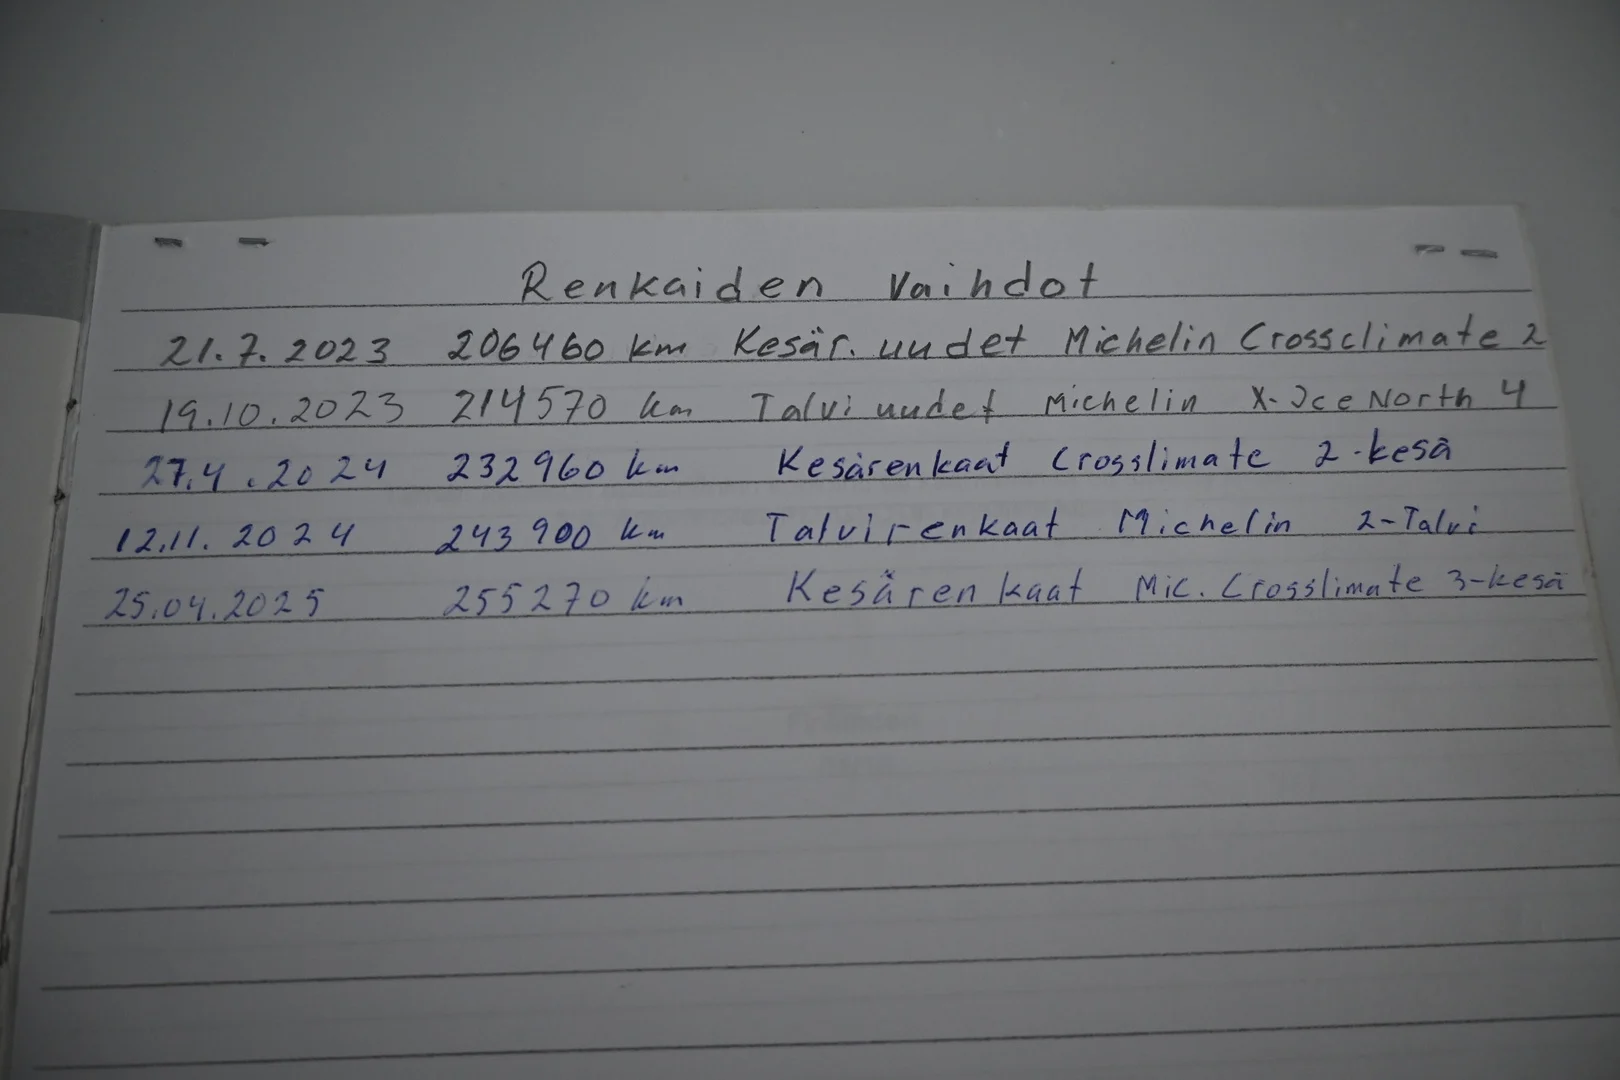 Renkaiden vaihdot
21.7.2023 206460 km Kesär. uudet Michelin Crossclimate 2
19.10.2023 214570 km Talvi uudet Michelin X-Ice North 4
27.4.2024 232960 km Kesärenkaat Crosslimate 2-kesä
12.11.2024 243900 km Talvirenkaat Michelin 2-Talvi
25.04.2025 255270 km Kesärenkaat Mic. Crosslimate 3-kesä